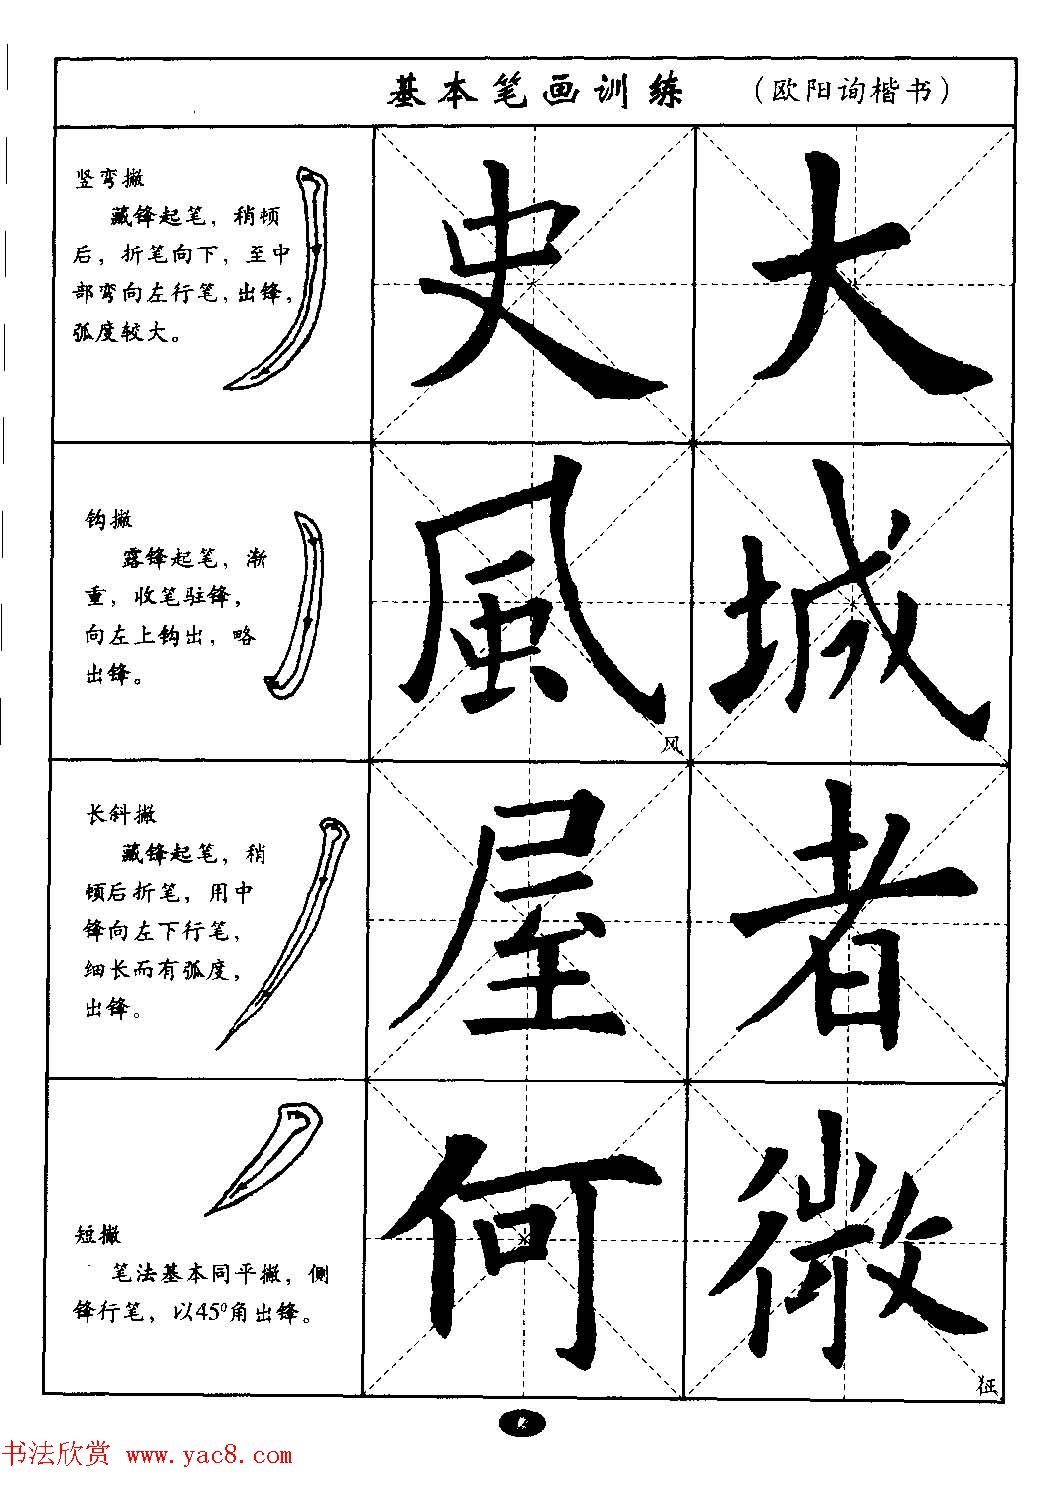 基本笔画训练 （欧阳询楷书）
竖弯撇
藏锋起笔，稍顿
后，折笔向下，至中
部弯向左行笔，出锋，
弧度较大。
史 大
钩撇
露锋起笔，渐
重，收笔驻锋，
向左上钩出，略
出锋。
風 城
风
长斜撇
藏锋起笔，稍
顿后折笔，用中
锋向左下行笔，
细长而有弧度，
出锋。
屋 者
短撇
笔法基本同平撇，侧
锋行笔，以45⁰角出锋。
何
书法欣赏 www.yac8.com